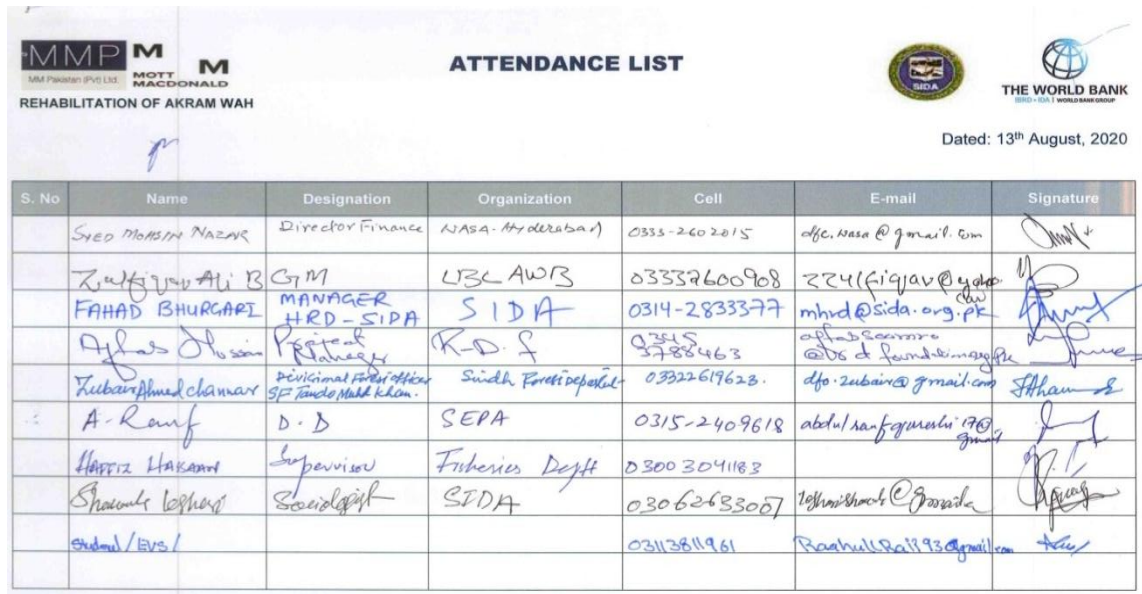 MMP
MM Pakistan (Pvt) Ltd.
M M
MOTT M
MACDONALD
REHABILITATION OF AKRAM WAH
ATTENDANCE LIST
SIDA
THE WORLD BANK
IBRD • IDA | WORLD BANK GROUP
Dated: 13th August, 2020
S. No Name Designation Organization Cell E-mail Signature
SYED MOHSIN NAZAR Director Finance WASA-Hyderabad 0333-2602015 dfc.wasa@gmail.com
Zulfiqar Ali B GM LBC AWB 03332600908
FAHAD BHURGARI MANAGER HRD-SIDA SIDA 0314-2833377 mhrd@sida.org.pk
Project Manager R-D.f 0345 3788463
Zubair Ahmed channar Divisional Forest officer SF Tando Muhd Khan. Sindh Forest 03322619623. dfo.zubair@gmail.com
A-Rauf D.D SEPA 0315-2409618
HAFFIZ Supervisor Fisheries Deptt 03003041183
Sociologist SIDA 03062633007
Student/EVS/ 03113811961